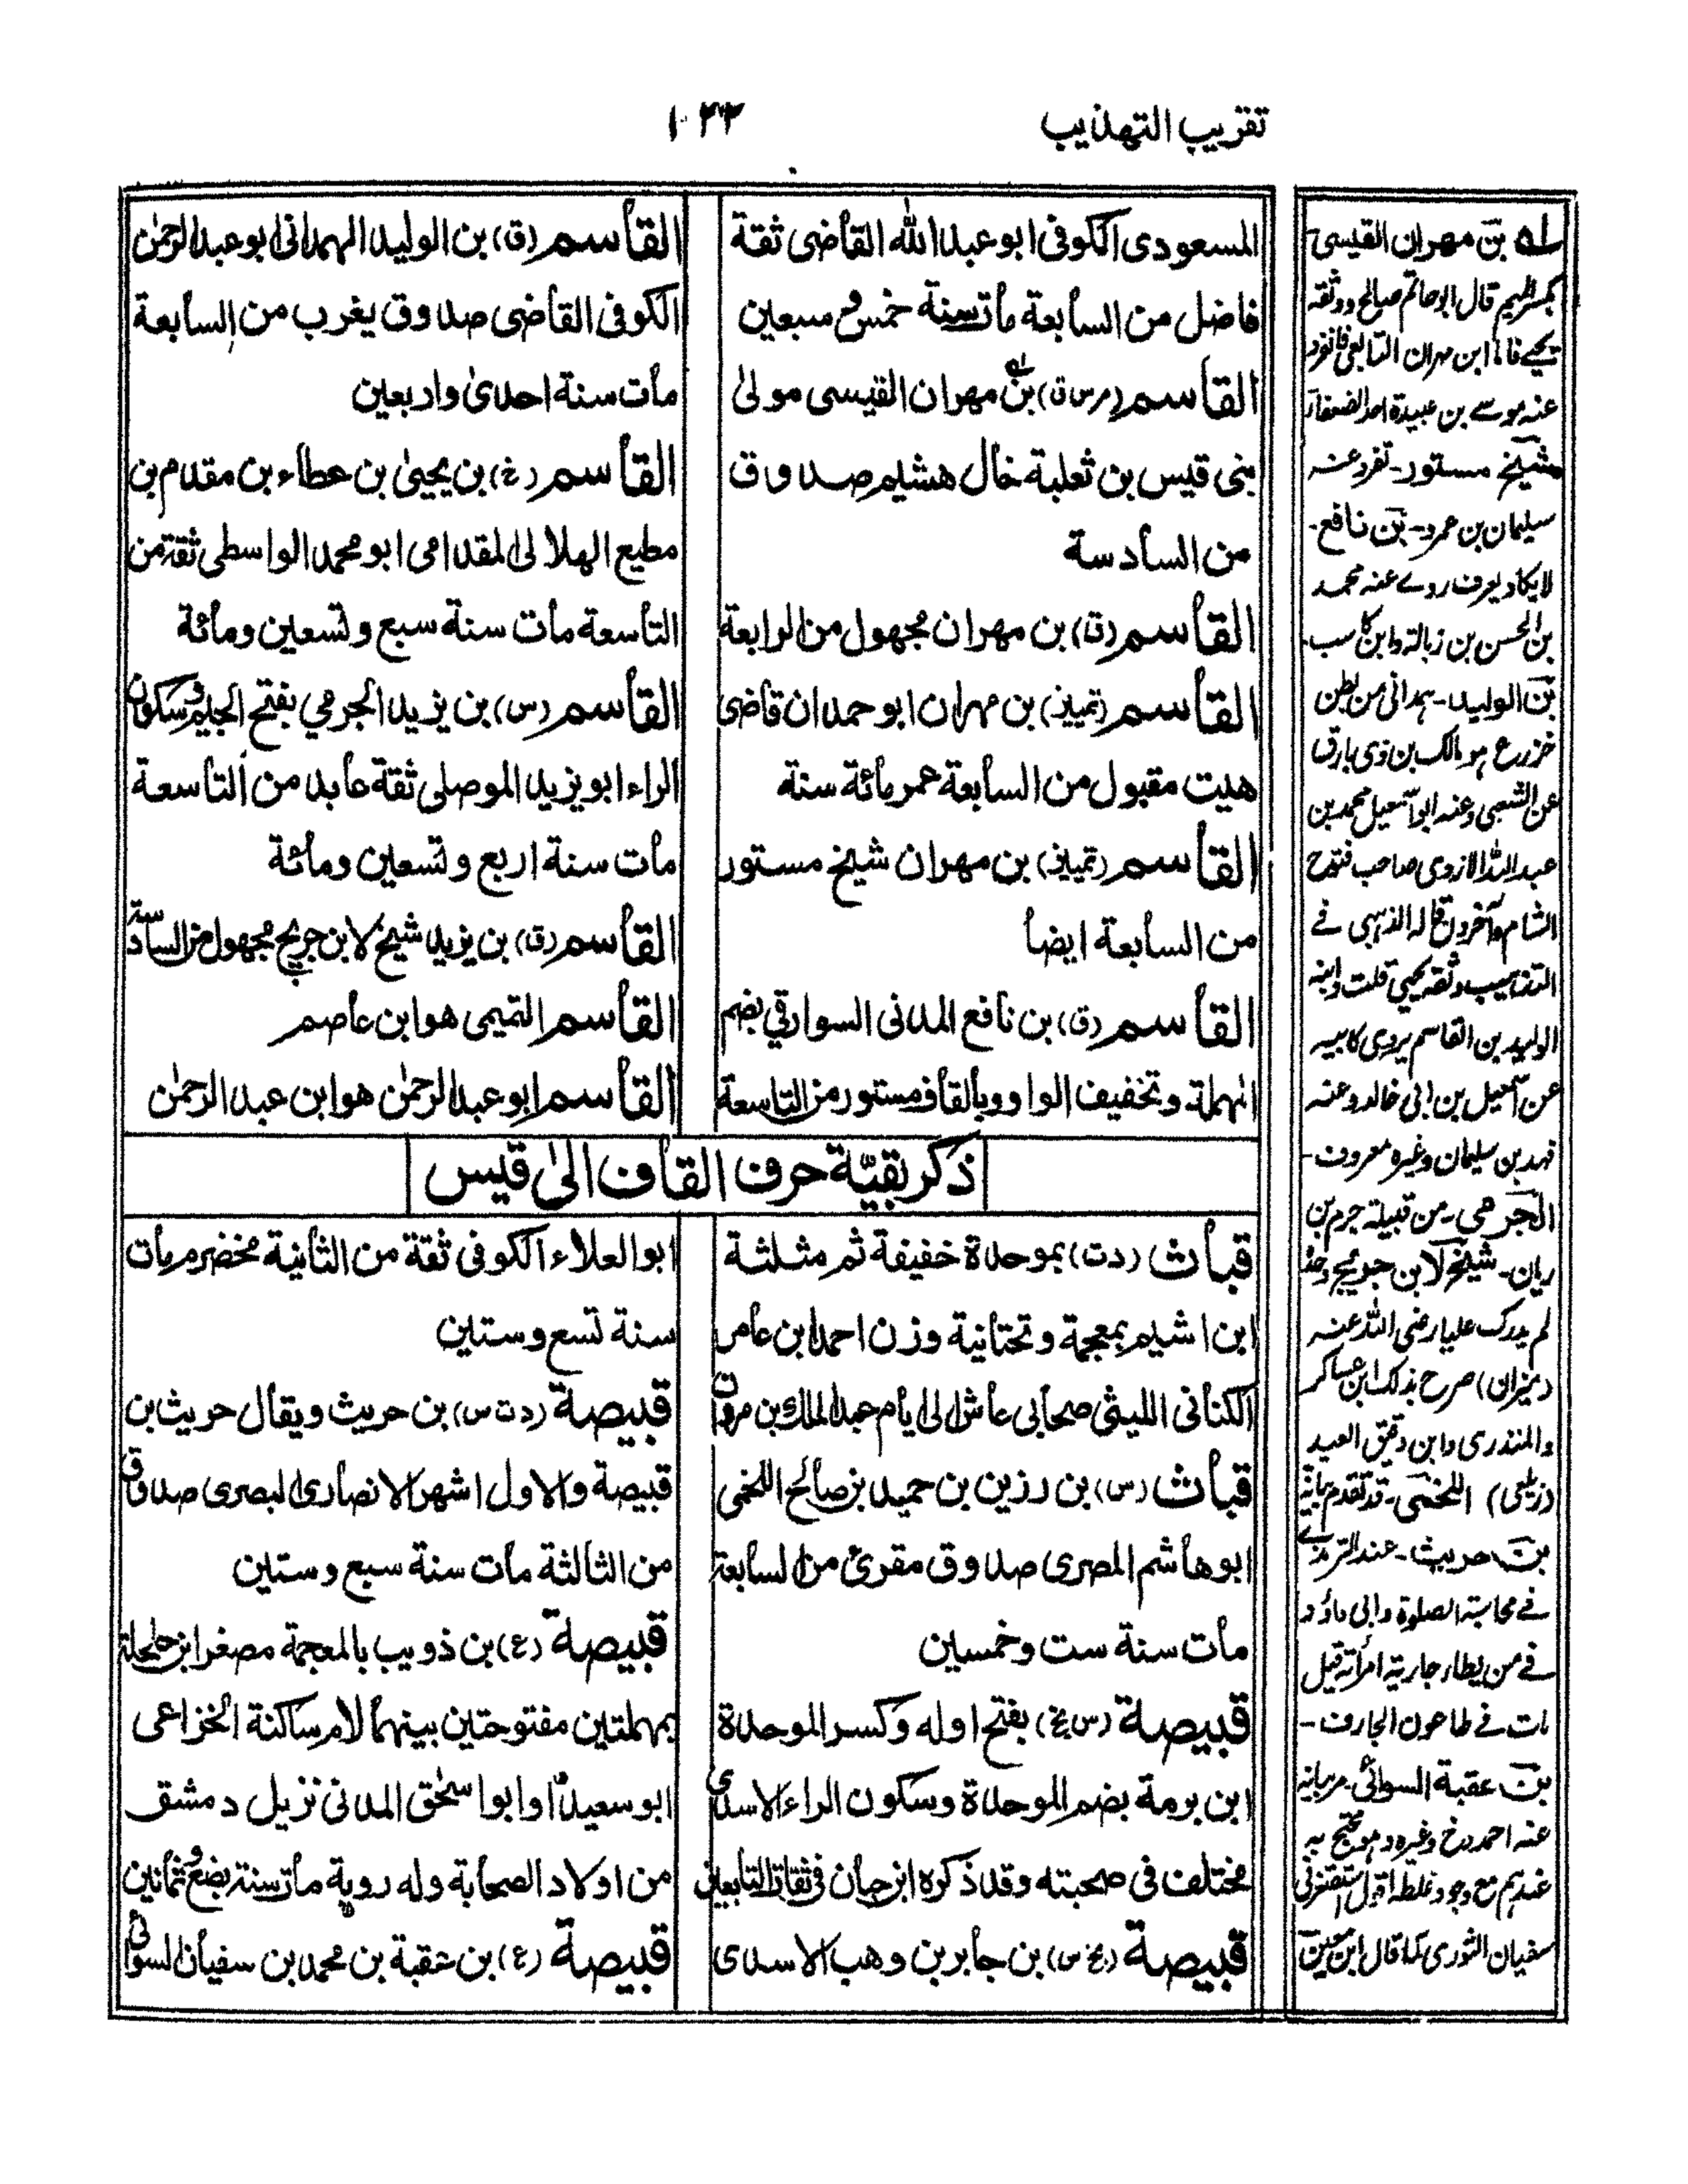 تقريب التهذيب
١٠٢٢
المسعودى الكوفى ابو عبد الله القاضى ثقة
فاضل من السابعة مات سنة خمس و سبعين
القاسم (م س ق) بن مهران القيسى مولى
بنى قيس بن ثعلبة خال هشيم صدوق
من السادسة
القاسم (ق) بن مهران مجهول من الرابعة
القاسم (تمييز) بن مهران ابو حمدان قاضى
هيت مقبول من السابعة عمر مائة سنة
القاسم (تمييز) بن مهران شيخ مستور
من السابعة ايضا
القاسم (ق) بن نافع المدنى السوارقي بضم
المهملة وتخفيف الواو وبالقاف مستور من التاسعة
القاسم (ق) بن الوليد الهمدانى ابو عبد الرحمٰن
الكوفى القاضى صدوق يغرب من السابعة
مات سنة احدىٰ واربعين
القاسم (خ) بن يحيىٰ بن عطاء بن مقدم بن
مطيع الهلالى المقدامى ابو محمد الواسطى ثقة من
التاسعة مات سنة سبع وتسعين ومائة
القاسم (س) بن يزيد الجرمي بفتح الجيم وسكون
الراء ابو يزيد الموصلى ثقة عابد من التاسعة
مات سنة اربع وتسعين ومائة
القاسم (ق) بن يزيد شيخ لابن جريج مجهول من السادسة
القاسم التميمى هو ابن عاصم
القاسم ابو عبد الرحمٰن هو ابن عبد الرحمٰن
ذكر بقيّة حرف القاف الىٰ قيس
قباث (د ت) بموحدة خفيفة ثم مثلثة
ابن اشيم بمعجمة وتحتانية وزن احمد ابن عامر
الكنانى الليثى صحابى عاش الى ايام عبد الملك بن مروان
قباث (س) بن رزين بن حميد بن صالح اللخمى
ابو هاشم المصرى صدوق مقرئ من السابعة
مات سنة ست وخمسين
قبيصة (س بخ) بفتح اوله وكسر الموحدة
ابن برمة بضم الموحدة وسكون الراء الاسدى
مختلف فى صحبته وقد ذكره ابن حبان فى ثقات التابعين
قبيصة (بخ س) بن جابر بن وهب الاسدى
ابو العلاء الكوفى ثقة من الثانية مخضرم مات
سنة تسع وستين
قبيصة (د ت س) بن حريث ويقال حريث بن
قبيصة والاول اشهر الانصارى البصرى صدوق
من الثالثة مات سنة سبع وستين
قبيصة (ع) بن ذويب بالمعجمة مصغر ابن حلحلة
بمهملتين مفتوحتين بينهما لام ساكنة الخزاعى
ابو سعيد او ابو اسحٰق المدنى نزيل دمشق
من اولاد الصحابة وله روية مات سنة بضع وثمانين
قبيصة (ع) بن عقبة بن محمد بن سفيان السوائى
لـه بن مهران القيسى
بكسر الميم قال ابو حاتم صالح ووثقه
يحيے فاما ابن مهران التابعى فانفرد
عنه موسے بن عبيدة احد الضعفاء
شيخ مستور - تفرد عنه
سليمان بن عمرو - بن نافع -
لا يكاد يعرف روے عنه محمد
بن الحسن بن زبالة وابن كاسب -
بن الوليد - همدانى من بطن
عن الشعبى وعنه ابو اسمٰعيل محمد بن
عبد الله الازدى صاحب فتوح
الشام وآخرون قاله الذهبى فے
التذهيب وثقه يحيى قلت وابنه
الوليد بن القاسم يروى كابيه
عن اسمٰعيل بن ابى خالد وعنه
فهد بن سليمان وغيره معروف -
الجرمي - من قبيلة جرم بن
ريان - شيخ لابن جريج وجده
لم يدرك عليا رضى الله عنه
(ميزان) صرح بذلك ابن عساكر
والمنذرى وابن دقيق العيد
(زيلعى) اللخمى - قد تقدم بيانه
بن حريث - عند الترمذے
فے محاسبة الصلوٰة وابى داؤد
فے من يطأ جارية امرأته قيل
مات فے طاعون الجارف -
بن عقبة السوائى - مر بيانه
عنه احمد رخ وغيره وهو محتج به
عندهم مع وجود غلطه اقول
سفيان الثورى كما قال ابن معين